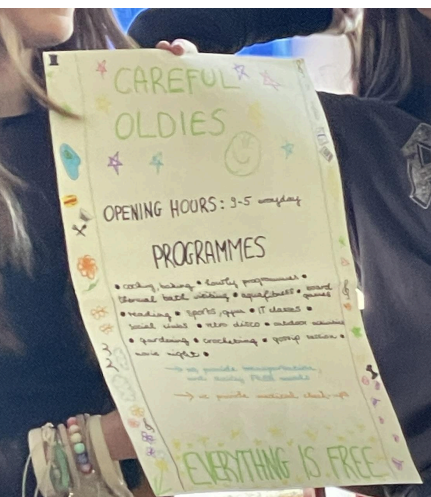 CAREFUL
OLDIES
OPENING HOURS: 9-5 everyday
PROGRAMMES
• cooking, baking • family programmes •
thermal bath visiting • aquafitness • board games
• reading • sports, gym • IT classes •
social clubs • retro disco • outdoor activities
• gardening • crocheting • gossip session •
movie night •
→ we provide transportation,
and daily FREE meals
→ we provide medical check-ups
EVERYTHNG IS FREE